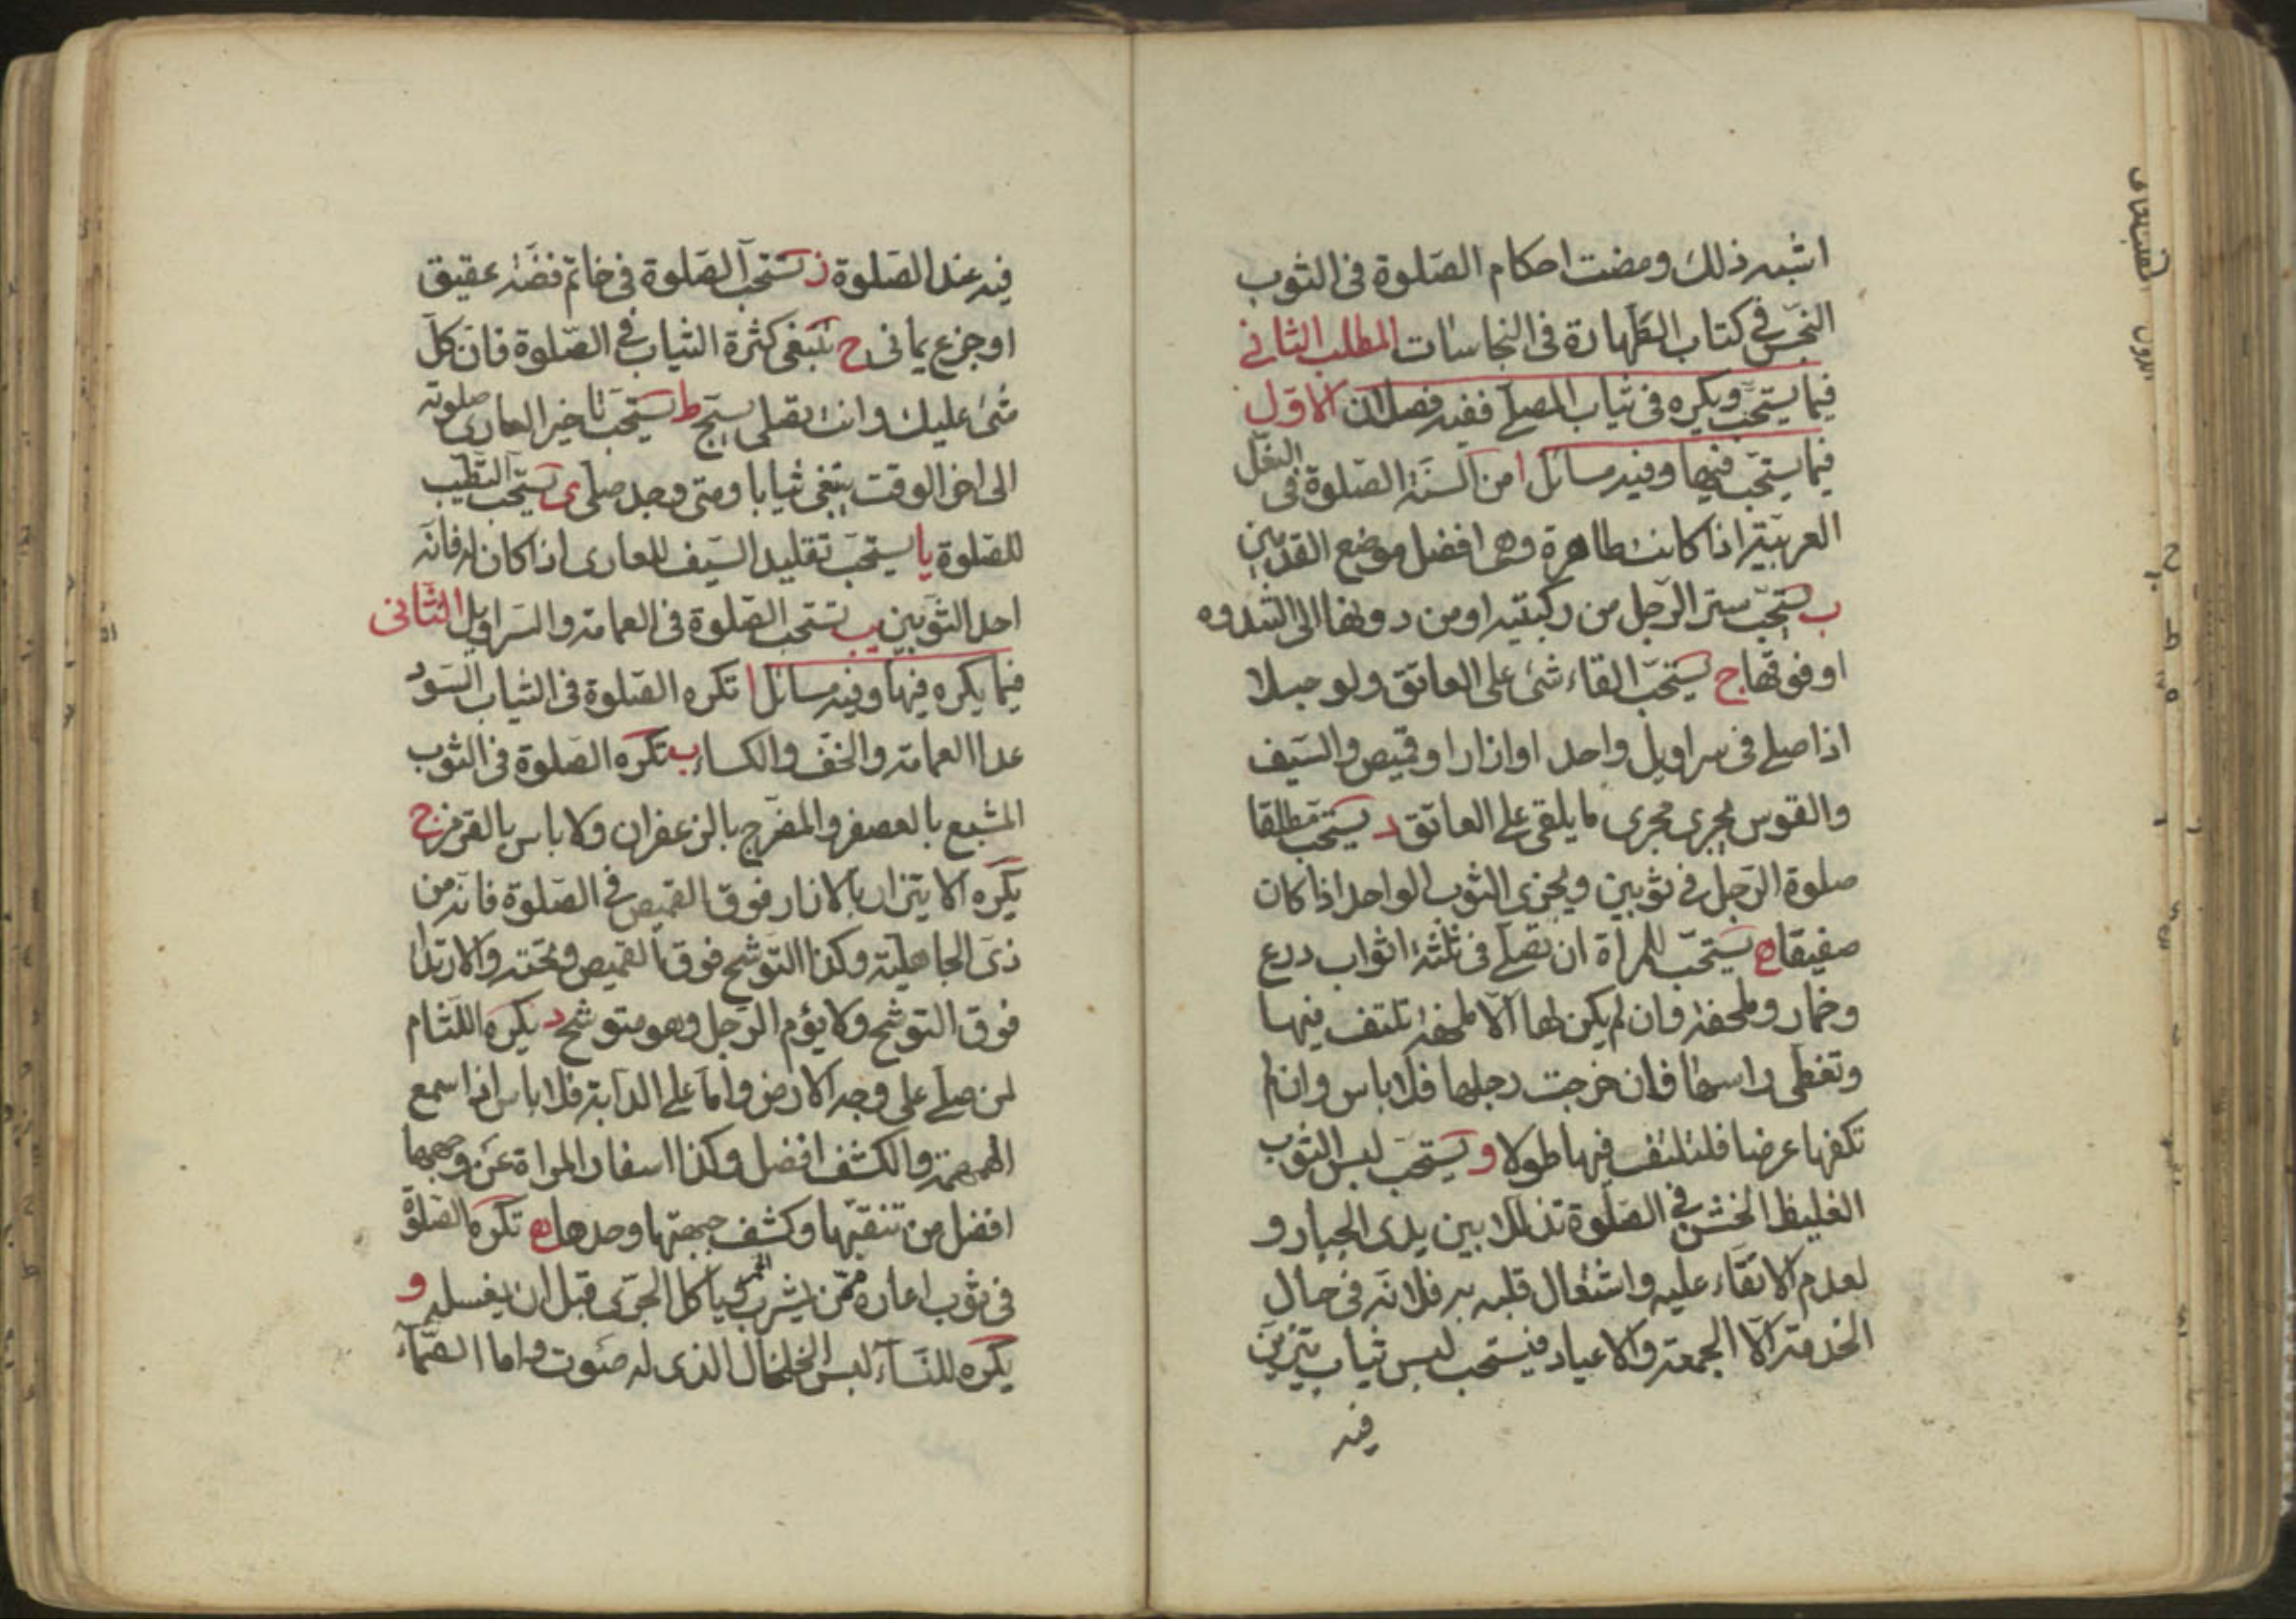 اشبه ذلك ومضت احكام الصلوة فى الثوب
النجس فى كتاب الطهارة فى النجاسات المطلب الثانى
فيما يستحب ويكره فى ثياب المصلى ففيه فصلان الاول
فيما يستحب فيها وفيه مسائل ا من السنة الصلوة فى النعل
العربية اذا كانت طاهرة وهى افضل موضع القدمين
ب يستحب ستر الرجل من ركبتيه او من دونها الى الثندوه
او فوقها ج يستحب القاء شئ على العاتق ولو حبلا
اذا صلى فى سراويل واحد او ازار او قميص والسيف
والقوس يجرى مجرى ما يلقى على العاتق د يستحب مطلقا
صلوة الرجل فى ثوبين ويجزى الثوب الواحد اذا كان
صفيقا ه يستحب للمراة ان تصلى فى ثلثة اثواب درع
وخمار وملحفة وان لم يكن لها الا ملحفة تلتف فيها
وتغطى راسها فان خرجت رجلها فلا باس وان لم
تكفها عرضا فلتلتف فيها طولا و يستحب لبس الثوب
الغليظ الخشن فى الصلوة تذللا بين يدى الجبار و
لعدم الاتقاء عليه واشتغال قلبه به فلانه فى حال
الخدمة الا الجمعة والاعياد فيستحب لبس ثياب يتزين
فيه
فيه عند الصلوة ز تستحب الصلوة فى خاتم فضة عقيق
او جزع يمانى ح ينبغى كثرة الثياب فى الصلوة فان كل
شئ عليك وانت تصلى يسبح ط يستحب تاخير العارى صلوته
الى اخر الوقت يبتغى ثيابا ومتى وجد صلى ى يستحب التطيب
للصلوة يا يستحب تقليد السيف للعارى اذا كان له فانه
احد الثوبين يب تستحب الصلوة فى العمامة والسراويل الثانى
فيما يكره فيها وفيه مسائل ا تكره الصلوة فى الثياب السود
عدا العمامة والخف والكساء ب تكره الصلوة فى الثوب
المشبع بالعصفر والمضرج بالزعفران ولا باس بالقرمز ج
يكره الايتزار بالازار فوق القميص فى الصلوة فانه من
زى الجاهلية وكذا التوشح فوق القميص وتحته والارتدا
فوق التوشح ولا يؤم الرجل وهو متوشح د يكره اللثام
لمن صلى على وجه الارض واما على الدابة فلا باس اذا سمع
الهمهمة والكشف افضل وكذا اسفار المراة عن وجهها
افضل من تنقبها وكشف جبهتها وحدها ه تكره الصلوة
فى ثوب اعاره ممن يشرب الخمر وياكل الجرى قبل ان يغسله و
يكره للنساء لبس الخلخال الذى له صوت واما الصماء